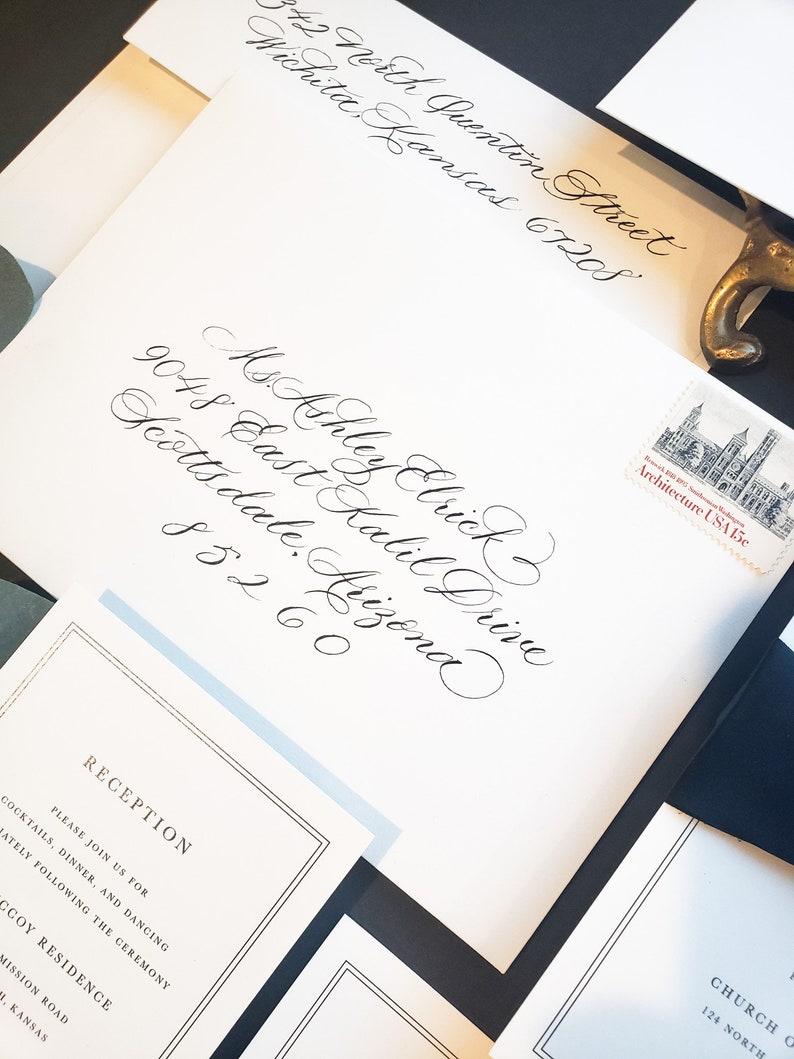 342 North Quentin Street
Wichita, Kansas 67208
Ms. Ashley Elrick
9048 East Kalil Drive
Scottsdale, Arizona
85260
Renwick 1818-1895 Smithsonian Washington
Architecture USA 15c
RECEPTION
PLEASE JOIN US FOR
COCKTAILS, DINNER, AND DANCING
FOLLOWING THE CEREMONY
RESIDENCE
MISSION ROAD
KANSAS
CHURCH
124 NORTH